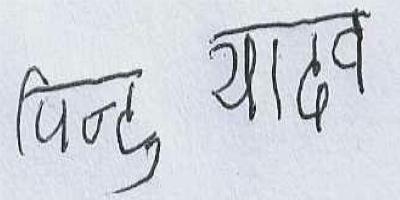 पिन्टु यादव